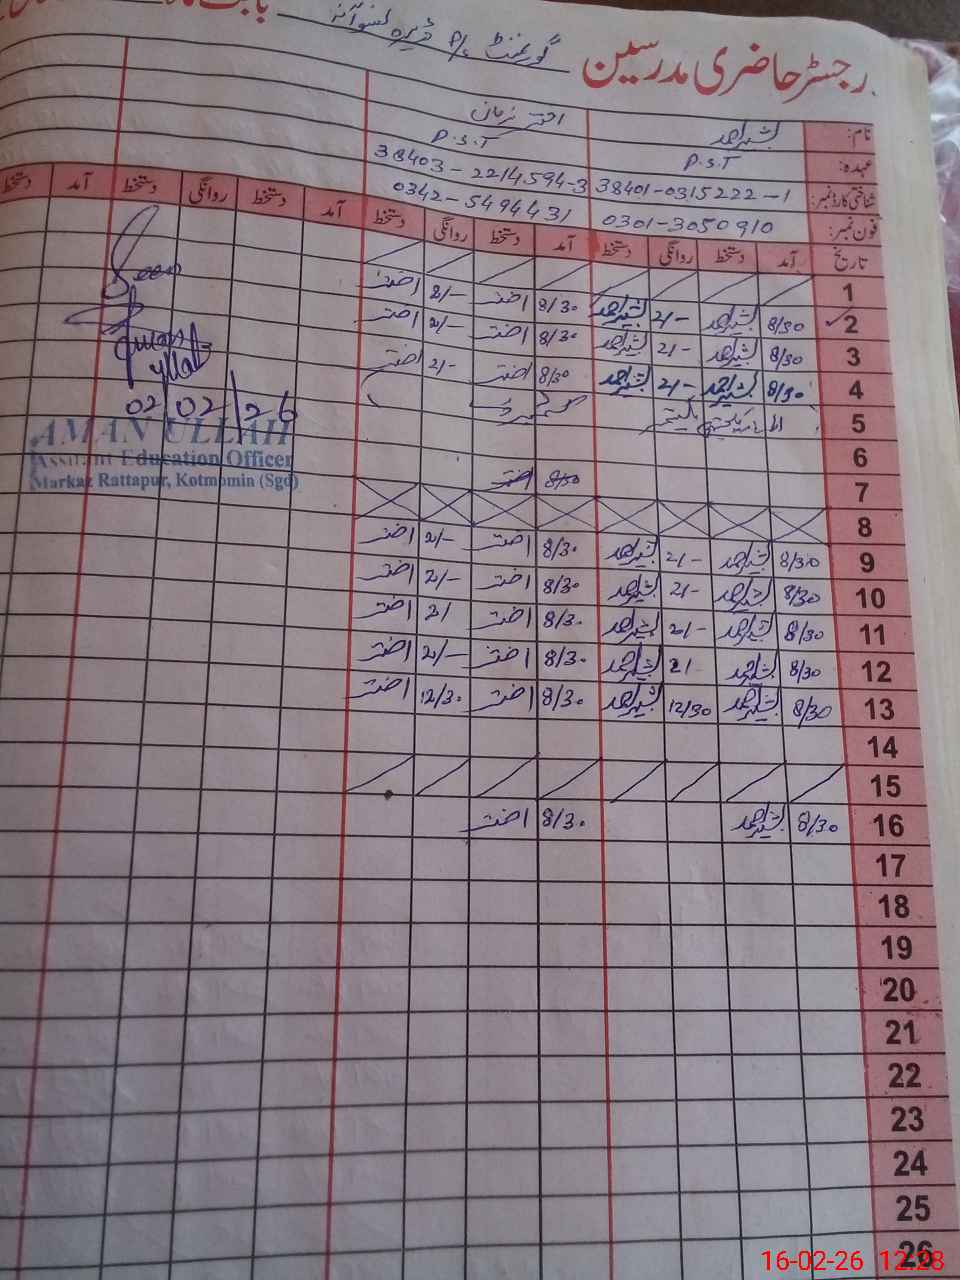 رجسٹر حاضری مدرسین گورنمنٹ P/s ڈیرہ
نام: بشیر احمد اختر زمان
عہدہ: P.S.T P.S.T
شناختی کارڈ نمبر: 38401-0315222-1 38403-2214594-3
فون نمبر: 0301-3050910 0342-5494431
تاریخ آمد دستخط روانگی دستخط آمد دستخط روانگی دستخط آمد دستخط روانگی دستخط آمد دستخط
1
2 8/30 بشیر احمد 2/- بشیر احمد 8/30 اختر 2/- اختر
3 8/30 بشیر احمد 2/- بشیر احمد 8/30 اختر 2/- اختر
4 8/30 بشیر احمد 2/- بشیر احمد 8/30 اختر 2/- اختر
5 یکجہتی کشمیر
6
7 8/30 اختر
8
9 8/30 بشیر احمد 2/- بشیر احمد 8/30 اختر 2/- اختر
10 8/30 بشیر احمد 2/- بشیر احمد 8/30 اختر 2/- اختر
11 8/30 بشیر احمد 2/- بشیر احمد 8/30 اختر 2/ اختر
12 8/30 بشیر احمد 2/- بشیر احمد 8/30 اختر 2/- اختر
13 8/30 بشیر احمد 12/30 بشیر احمد 8/30 اختر 12/30 اختر
14
15
16 8/30 بشیر احمد 8/30 اختر
17
18
19
20
21
22
23
24
25
26
Seen
02/02/26
AMAN ULLAH
Assistant Education Officer
Markaz Rattapur, Kotmomin (Sgd)
16-02-26 12:28